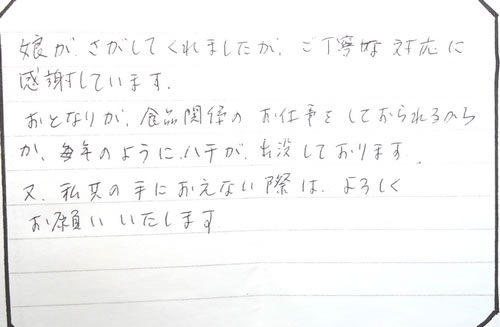 娘が、さがしてくれましたが、ご丁寧な対応に
感謝しています。
おとなりが、食品関係のお仕事をしておられるから
か、毎年のように、ハチが、出没しております。
又、私共の手におえない際は、よろしく
お願いいたします